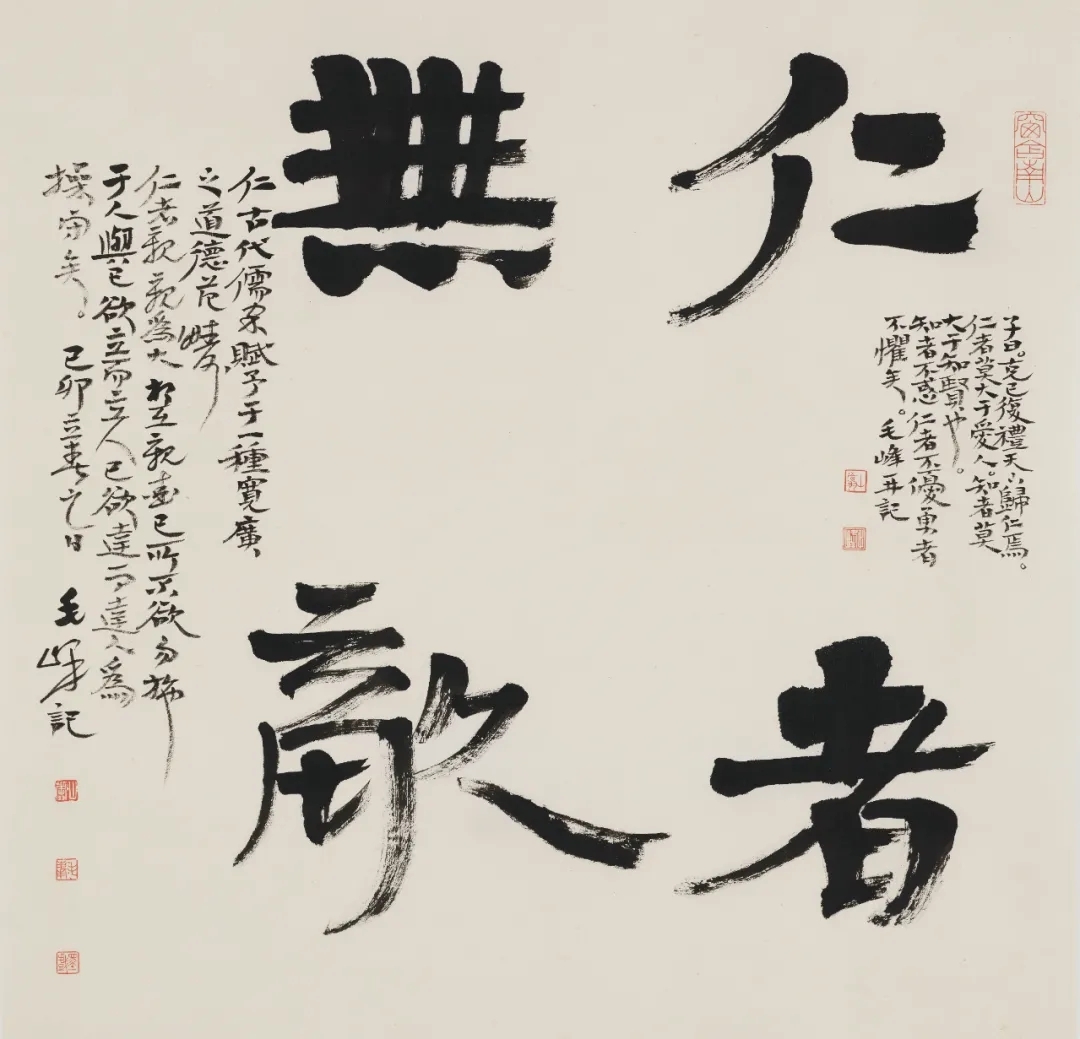 窗含南山
仁者
子曰。克己復禮天下歸仁焉。
仁者莫大于愛人。知者莫
大于知賢也。
知者不惑仁者不優勇者
不懼矣。毛峰再記
無敵
仁古代儒家賦予于一種寬廣
之道德范疇
仁者親親爲大相互親愛己所不欲勿施
于人與己欲立而立人己欲達而達人爲
操守矣。己卯立春之日 毛峰記